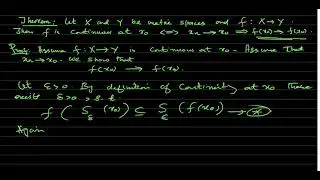 Theorem: Let X and Y be metric spaces and f: X → Y.
Then f is continuous at x₀ ⟺ xₙ → x₀ ⟹ f(xₙ) → f(x₀).
Proof: Assume f: X → Y is continuous at x₀. Assume that
xₙ → x₀. We show that
f(xₙ) → f(x₀).
Let ε > 0. By definition of continuity at x₀ there
exists δ > 0, s.t.
f ( S_δ (x₀) ) ⊆ S_ε (f(x₀)) → (*)
Again